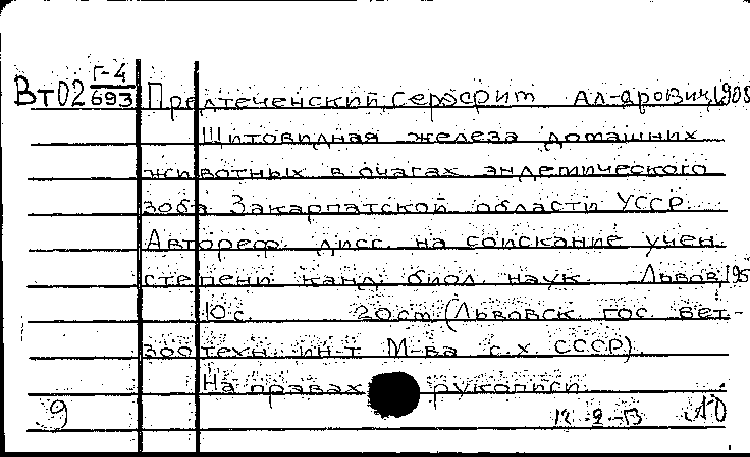 Вт02 Г-4
693
Предтеченский, Серафим Ал-дрович, 1908
Щитовидная железа домашних
животных в очагах эндемического
зоба Закарпатской области УССР.
Автореф. дисс. на соискание учен.
степени канд. биол. наук. Львов, 195
10 с. 20 см (Львовск. гос. вет-
зоотехн. ин-т М-ва с.х. СССР)
На правах рукописи
9